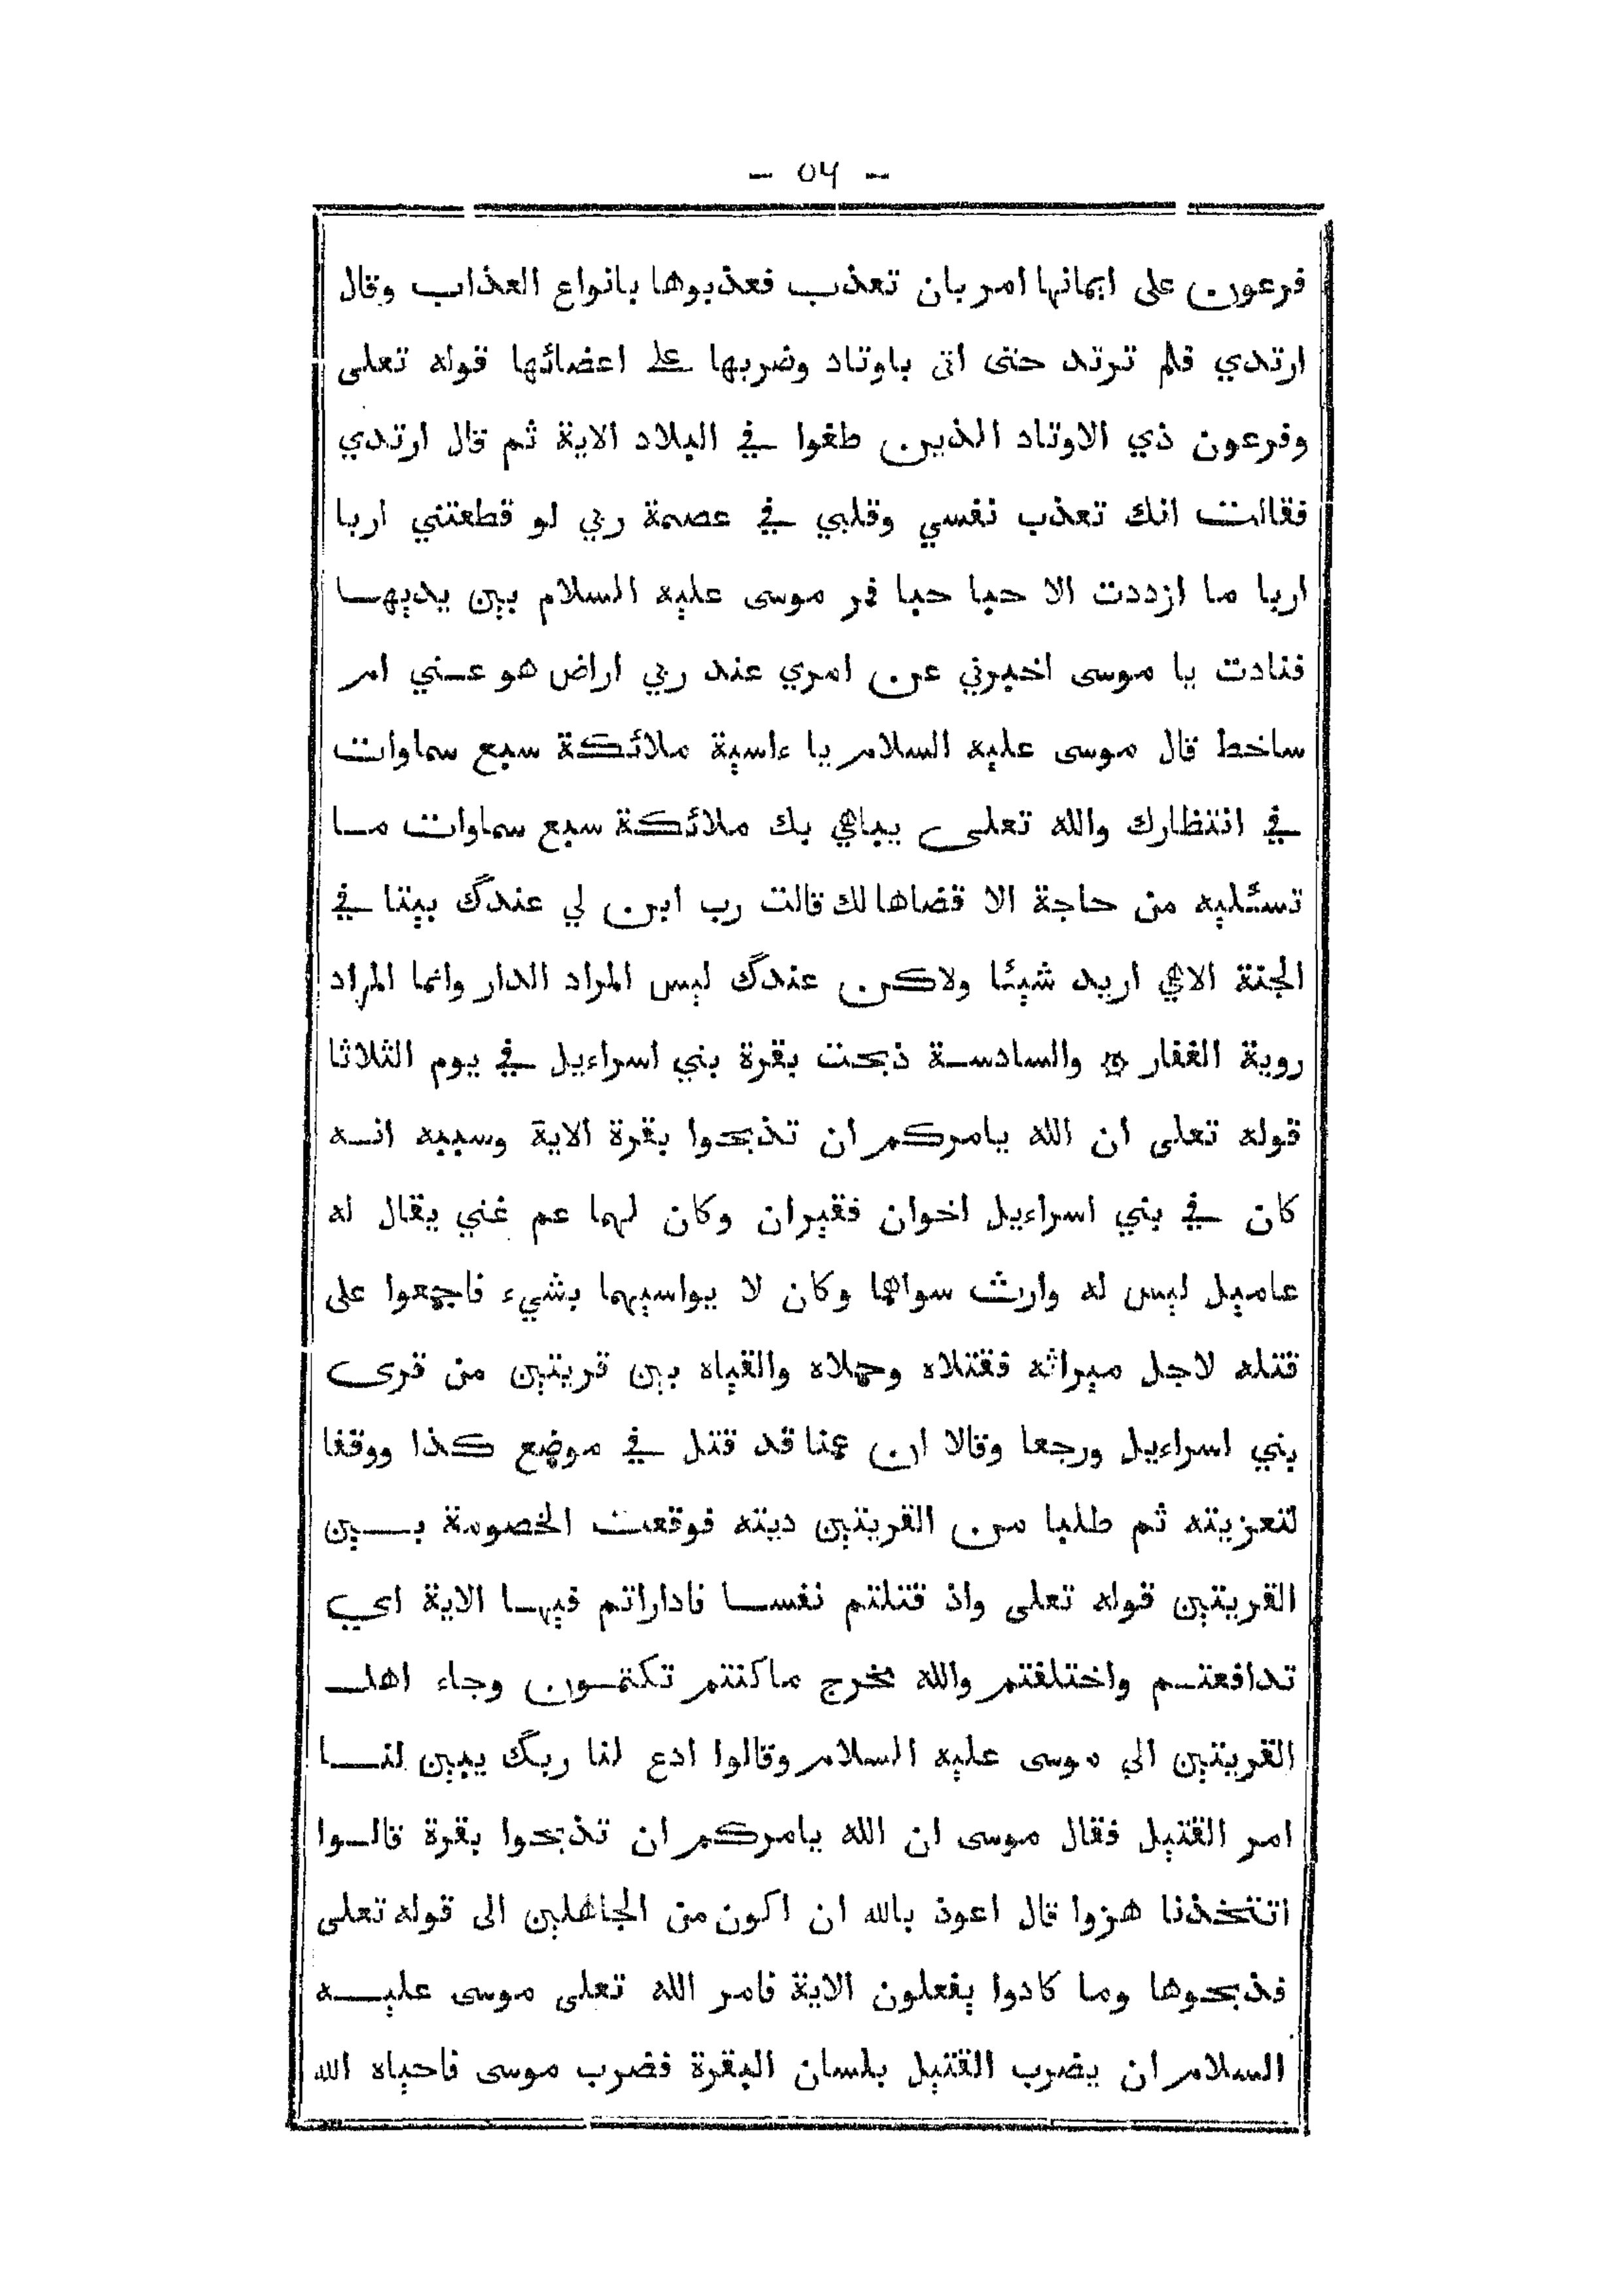 - ٥٦ -
فرعون على ايمانها امر بان تعذب فعذبوها بانواع العذاب وقال
ارتدي فلم ترتد حتى اتى باوتاد وضربها على اعضائها قوله تعلى
وفرعون ذي الاوتاد الذين طغوا في البلاد الاية ثم قال ارتدي
فقالت انك تعذب نفسي وقلبي في عصمة ربي لو قطعتني اربا
اربا ما ازددت الا حبا حبا فمر موسى عليه السلام بين يديها
فنادت يا موسى اخبرني عن امري عند ربي اراض هو عني امر
ساخط قال موسى عليه السلام يا ءاسية ملائكة سبع سماوات
في انتظارك والله تعلى يباهي بك ملائكة سبع سماوات ما
تسئليه من حاجة الا قضاها لك قالت رب ابن لي عندك بيتا في
الجنة الاي اريد شيئا ولاكن عندك ليس المراد الدار وانما المراد
روية الغفار ۞ والسادسة ذبحت بقرة بني اسراءيل في يوم الثلاثا
قوله تعلى ان الله يامركم ان تذبحوا بقرة الاية وسببه انه
كان في بني اسراءيل اخوان فقيران وكان لهما عم غني يقال له
عاميل ليس له وارث سواهما وكان لا يواسيهما بشيء فاجمعوا على
قتله لاجل ميراثه فقتلاه وحملاه والقياه بين قريتين من قرى
بني اسراءيل ورجعا وقالا ان عمنا قد قتل في موضع كذا ووقفا
لتعزيته ثم طلبا من القريتين ديته فوقعت الخصومة بين
القريتين قوله تعلى واذ قتلتم نفسا فاداراتم فيها الاية اي
تدافعتم واختلفتم والله مخرج ماكنتم تكتمون وجاء اهل
القريتين الي موسى عليه السلام وقالوا ادع لنا ربك يبين لنا
امر القتيل فقال موسى ان الله يامركم ان تذبحوا بقرة قالوا
اتتخذنا هزوا قال اعوذ بالله ان اكون من الجاهلين الى قوله تعلى
فذبحوها وما كادوا يفعلون الاية فامر الله تعلى موسى عليه
السلام ان يضرب القتيل بلسان البقرة فضرب موسى فاحياه الله